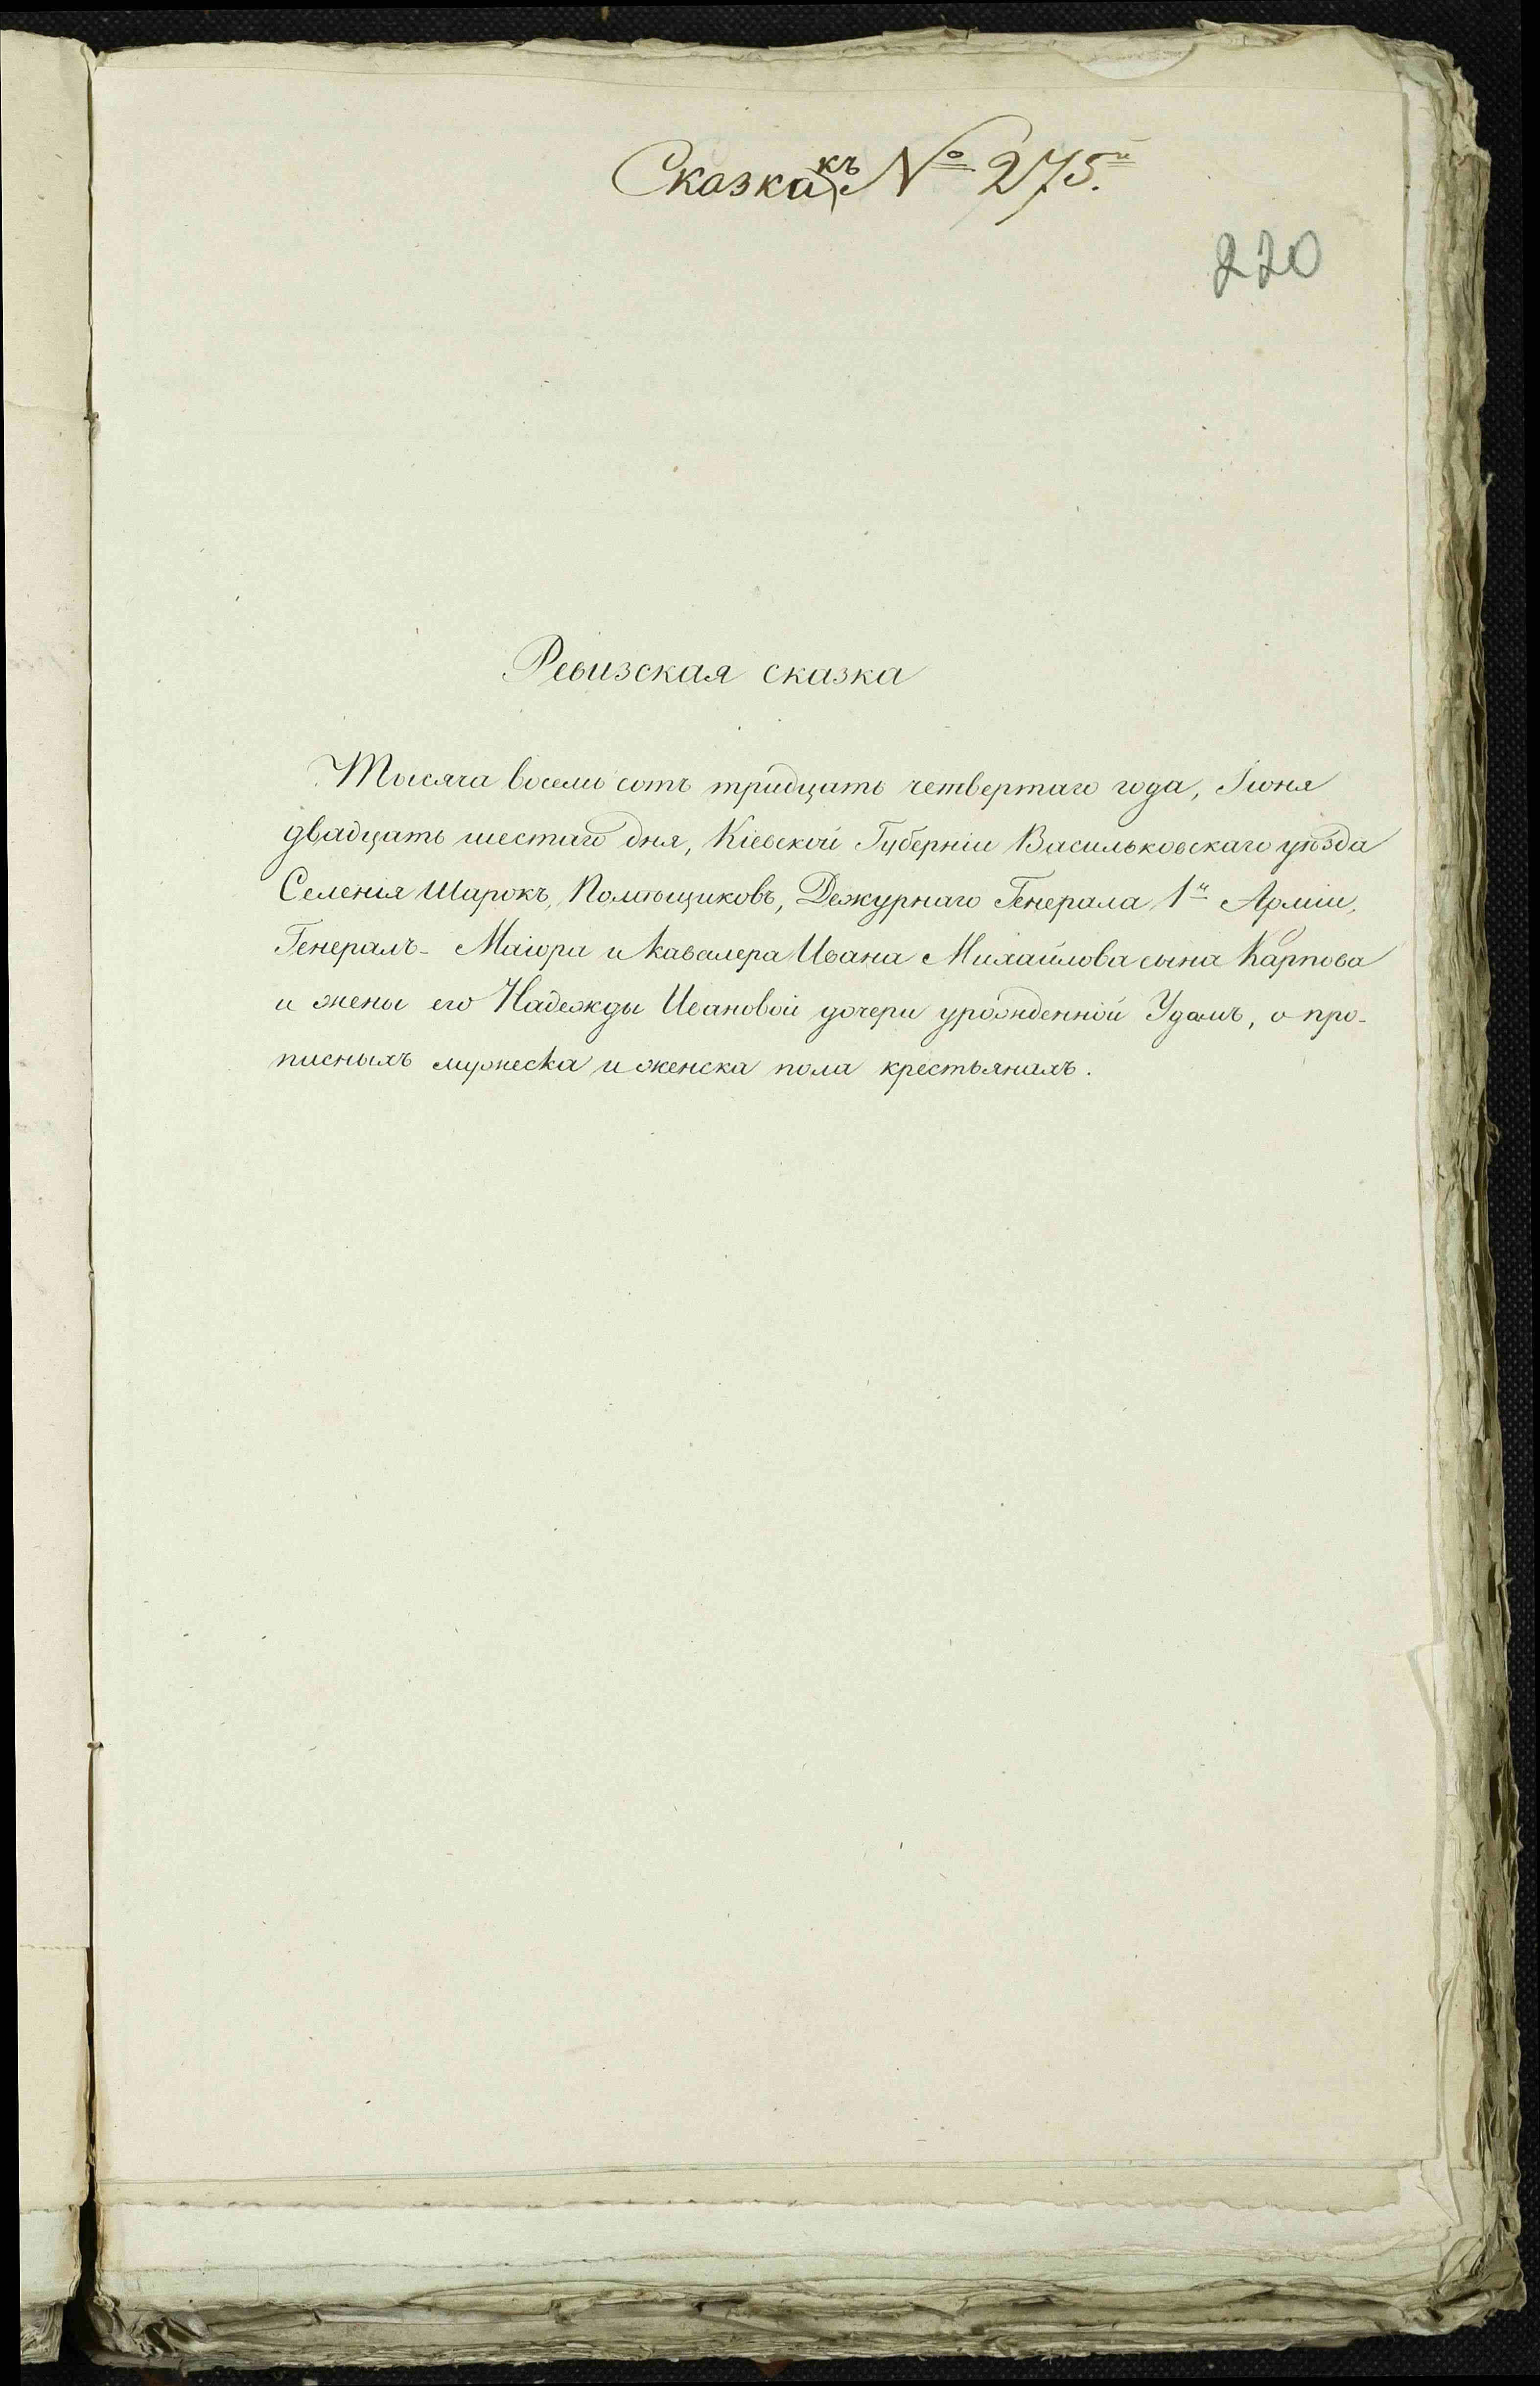 Сказка къ № 275.й
220
Ревизская сказка
Тысяча восемь сотъ тридцать четвертаго года, Іюня
двадцать шестаго дня, Кіевской Губерніи Васильковскаго уѣзда
Селенія Шарокъ, Помѣщиковъ, Дежурнаго Генерала 1й Арміи,
Генералъ-Маіора и Кавалера Ивана Михайлова сына Карпова
и жены его Надежды Ивановой дочери урожденной Удомъ, о про-
писныхъ мужеска и женска пола крестьянахъ.